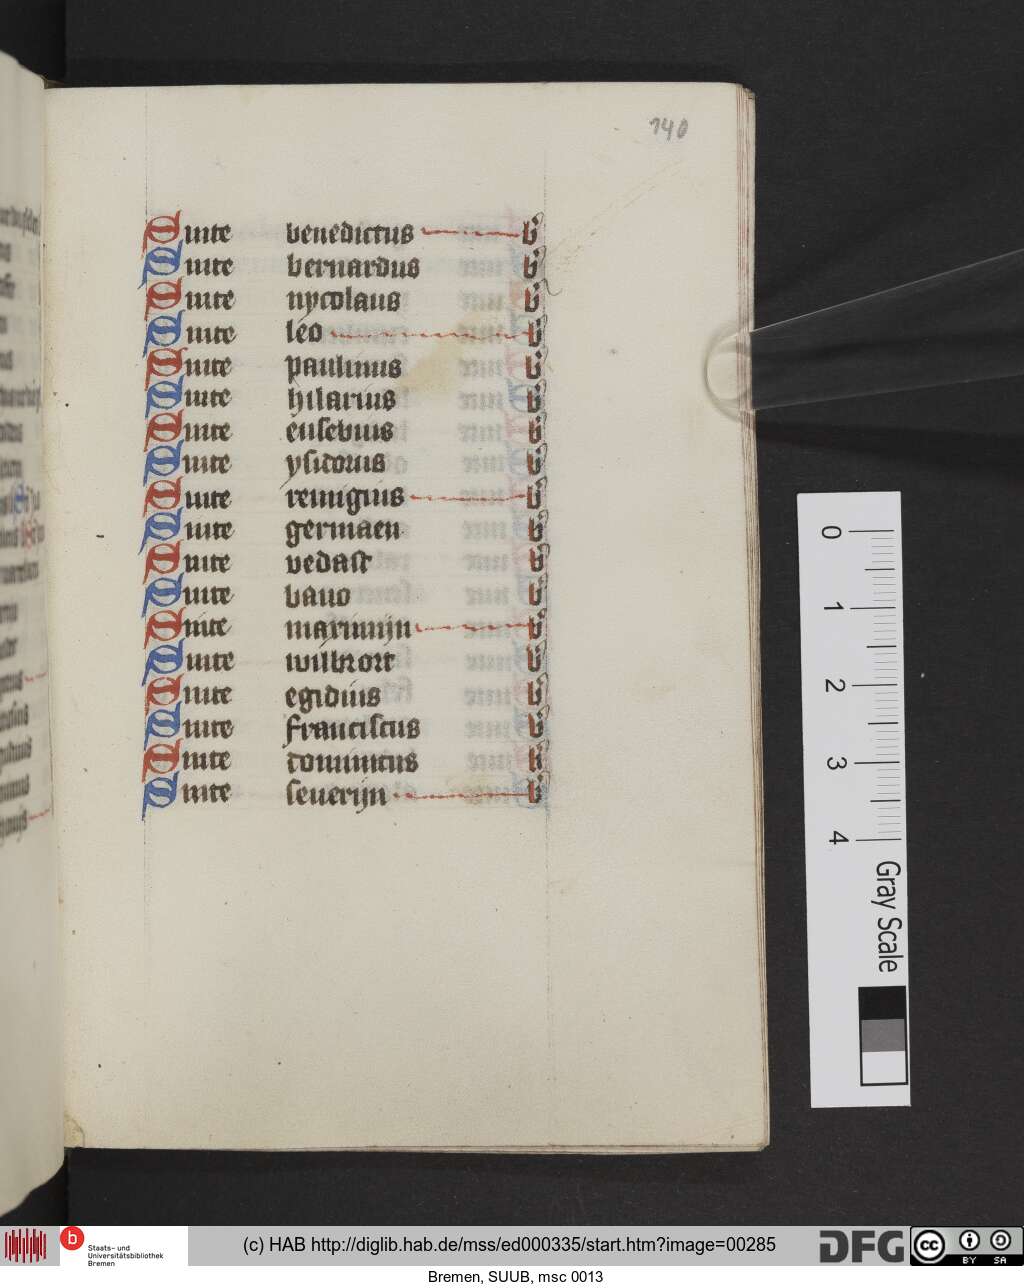 140
Sinte benedictus b'
Sinte bernardus b'
Sinte nycolaus b'
Sinte leo b'
Sinte paulinus b'
Sinte hilarius b'
Sinte eusebius b'
Sinte ysidorus b'
Sinte remigius b'
Sinte germaen b'
Sinte vedast b'
Sinte bauo b'
Sinte maximijn b'
Sinte wilbrort b'
Sinte egidius b'
Sinte franciscus b'
Sinte dominicus b'
Sinte seuerijn b'
0
1
2
3
4
Gray Scale
b Staats- und
Universitätsbibliothek
Bremen
(c) HAB http://diglib.hab.de/mss/ed000335/start.htm?image=00285
DFG
cc BY SA
Bremen, SUUB, msc 0013